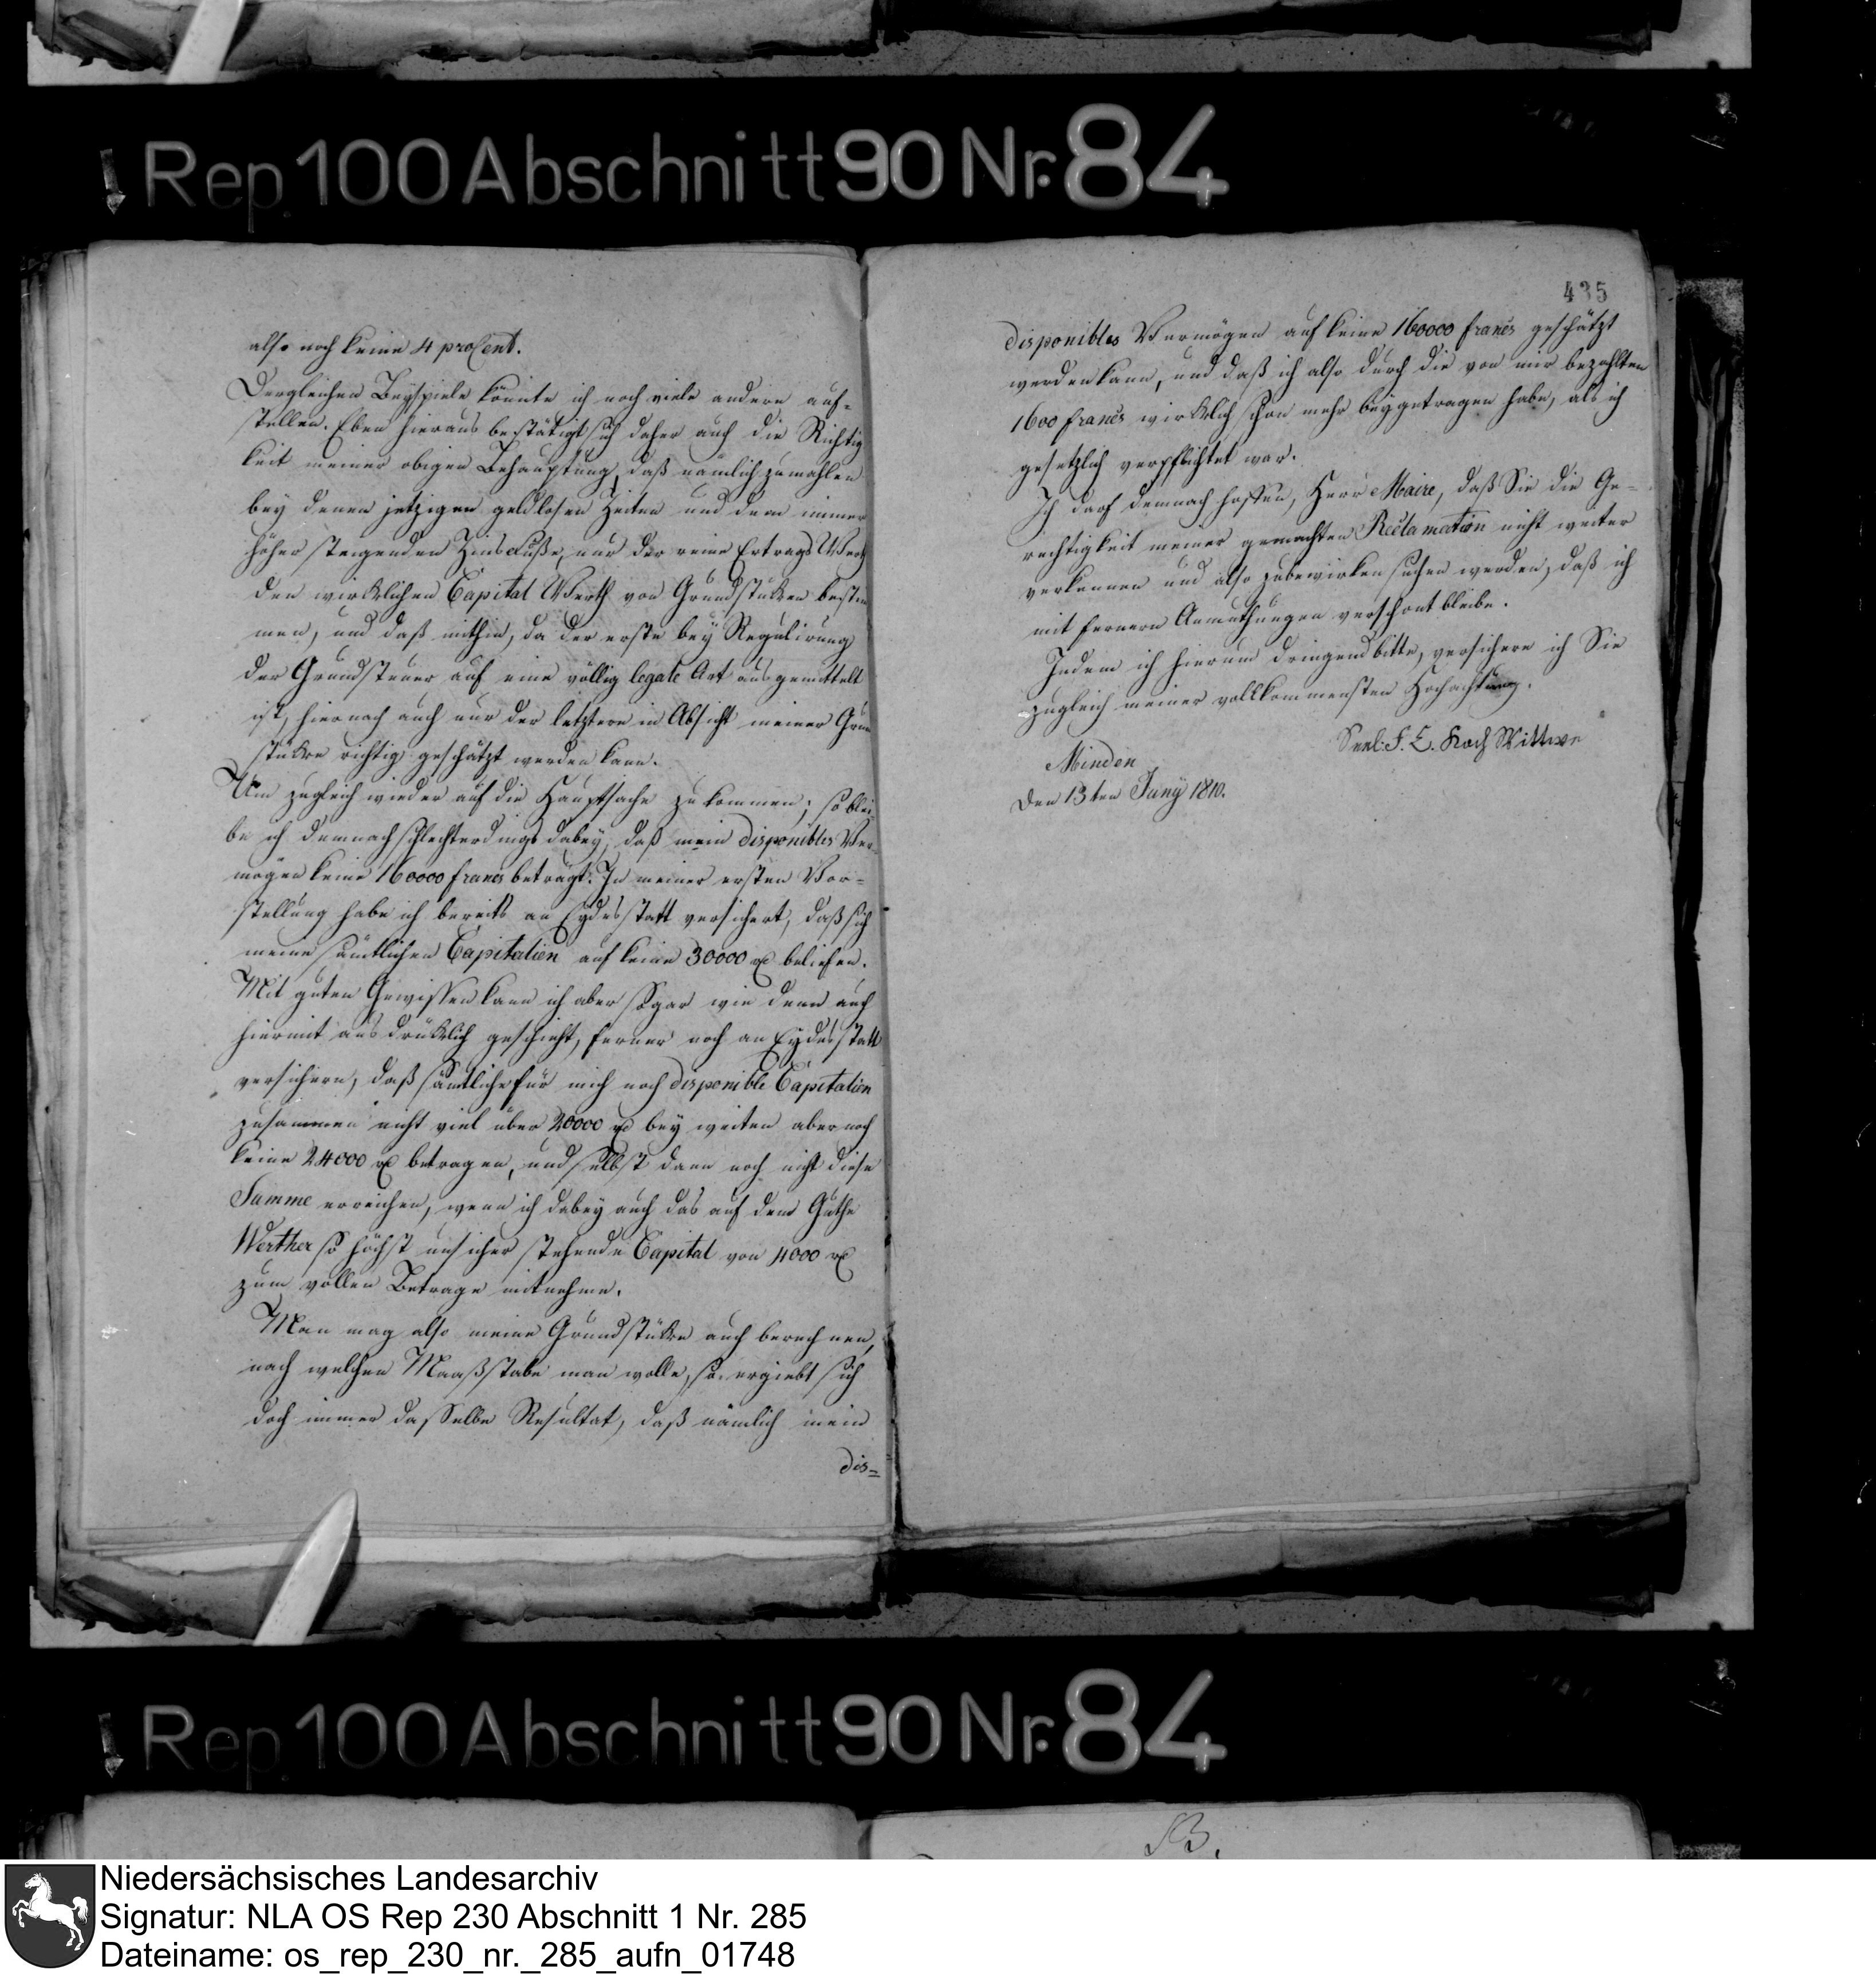 Rep. 100 Abschnitt 90 Nr. 84
also noch keine 4 proCent.
Dergleichen Beyspiele könnte ich noch viele andere auf-
stellen. Eben hieraus bestätigt sich daher auch die Richtig
keit meiner obigen Behauptung, daß nämlich zumahlen
bey denen jetzigen geldlosen Zeiten und dem immer
höher steigenden Zinsfuße, nur der reine Ertrags Werth
den wirklichen Capital Werth von Grundstücken bestim
men, und daß mithin, da der erste bey Regulirung
der Grundsteuer auf eine völlig legale Art ausgemittelt
ist, hiernach auch nur der letztere in Absicht meiner Grund
stücke richtig geschätzt werden kann.
Um zugleich wieder auf die Hauptsache zu kommen; so blei-
be ich demnach schlechterdings dabey, daß mein disponibles Ver-
mögen keine 160000 francs beträgt. In meiner ersten Vor-
stellung habe ich bereits an Eydesstatt versichert, daß sich
meine sämtlichen Capitalien auf keine 30000 rt beliefen.
Mit guten Gewissen kann ich aber sogar wie denn auch
hiermit ausdrücklich geschieht, ferner noch an Eydesstatt
versichern, daß sämtliche für mich noch disponible Capitalien
zusammen nicht viel über 20000 rt bey weiten aber noch
keine 24000 rt betragen, und selbst dann noch nicht diese
Summe erreichen, wenn ich dabey auch das auf dem Guthe
Werther so höchst unsicher stehende Capital von 4000 rt
zum vollen Betrage mitnehme.
Man mag also meine Grundstücke auch berechnen,
nach welchen Maaßstabe man wolle, so ergiebt sich
doch immer dasselbe Resultat, daß nämlich mein
dis-
435
disponibles Vermögen auf keine 160000 francs geschätzt
werden kann, und daß ich also durch die von mir bezahlten
1600 francs wirklich schon mehr beygetragen habe, als ich
gesetzlich verpflichtet war.
Ich darf demnach hoffen, Herr Maire, daß Sie die Ge-
rechtigkeit meiner gemachten Reclamation nicht weiter
verkennen und also zubewirken suchen werden, daß ich
mit fernern Anmuthungen verschont bleibe.
Indem ich hierum dringend bitte, versichere ich Sie
zugleich meiner vollkommensten Hochachtung.
Seel: F. E. Koch Wittwe
Minden
den 13ten Juny 1810.
Rep. 100 Abschnitt 90 Nr. 84
B.
Niedersächsisches Landesarchiv
Signatur: NLA OS Rep 230 Abschnitt 1 Nr. 285
Dateiname: os_rep_230_nr._285_aufn_01748